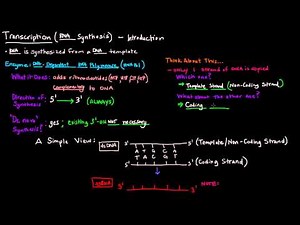 Transcription (RNA Synthesis) - Introduction
- RNA is synthesized from a DNA template
Enzyme: DNA-Dependent RNA Polymerase (RNA Pol)
What it Does: adds ribonucleotides
Complementary to DNA
Direction of Synthesis: 5' → 3' (ALWAYS)
"De novo" Synthesis? yes; existing 3'-OH NOT necessary
Think About This...
- only 1 strand of DNA is copied
Which one?
→ Template Strand (Non-Coding Strand)
What about the other one?
→ Coding
A Simple View:
dsDNA
3' 5' (Template/Non-Coding Strand)
A T G C A
T A C G T
5' 3' (Coding Strand)
ssRNA
5' 3' NOTE: